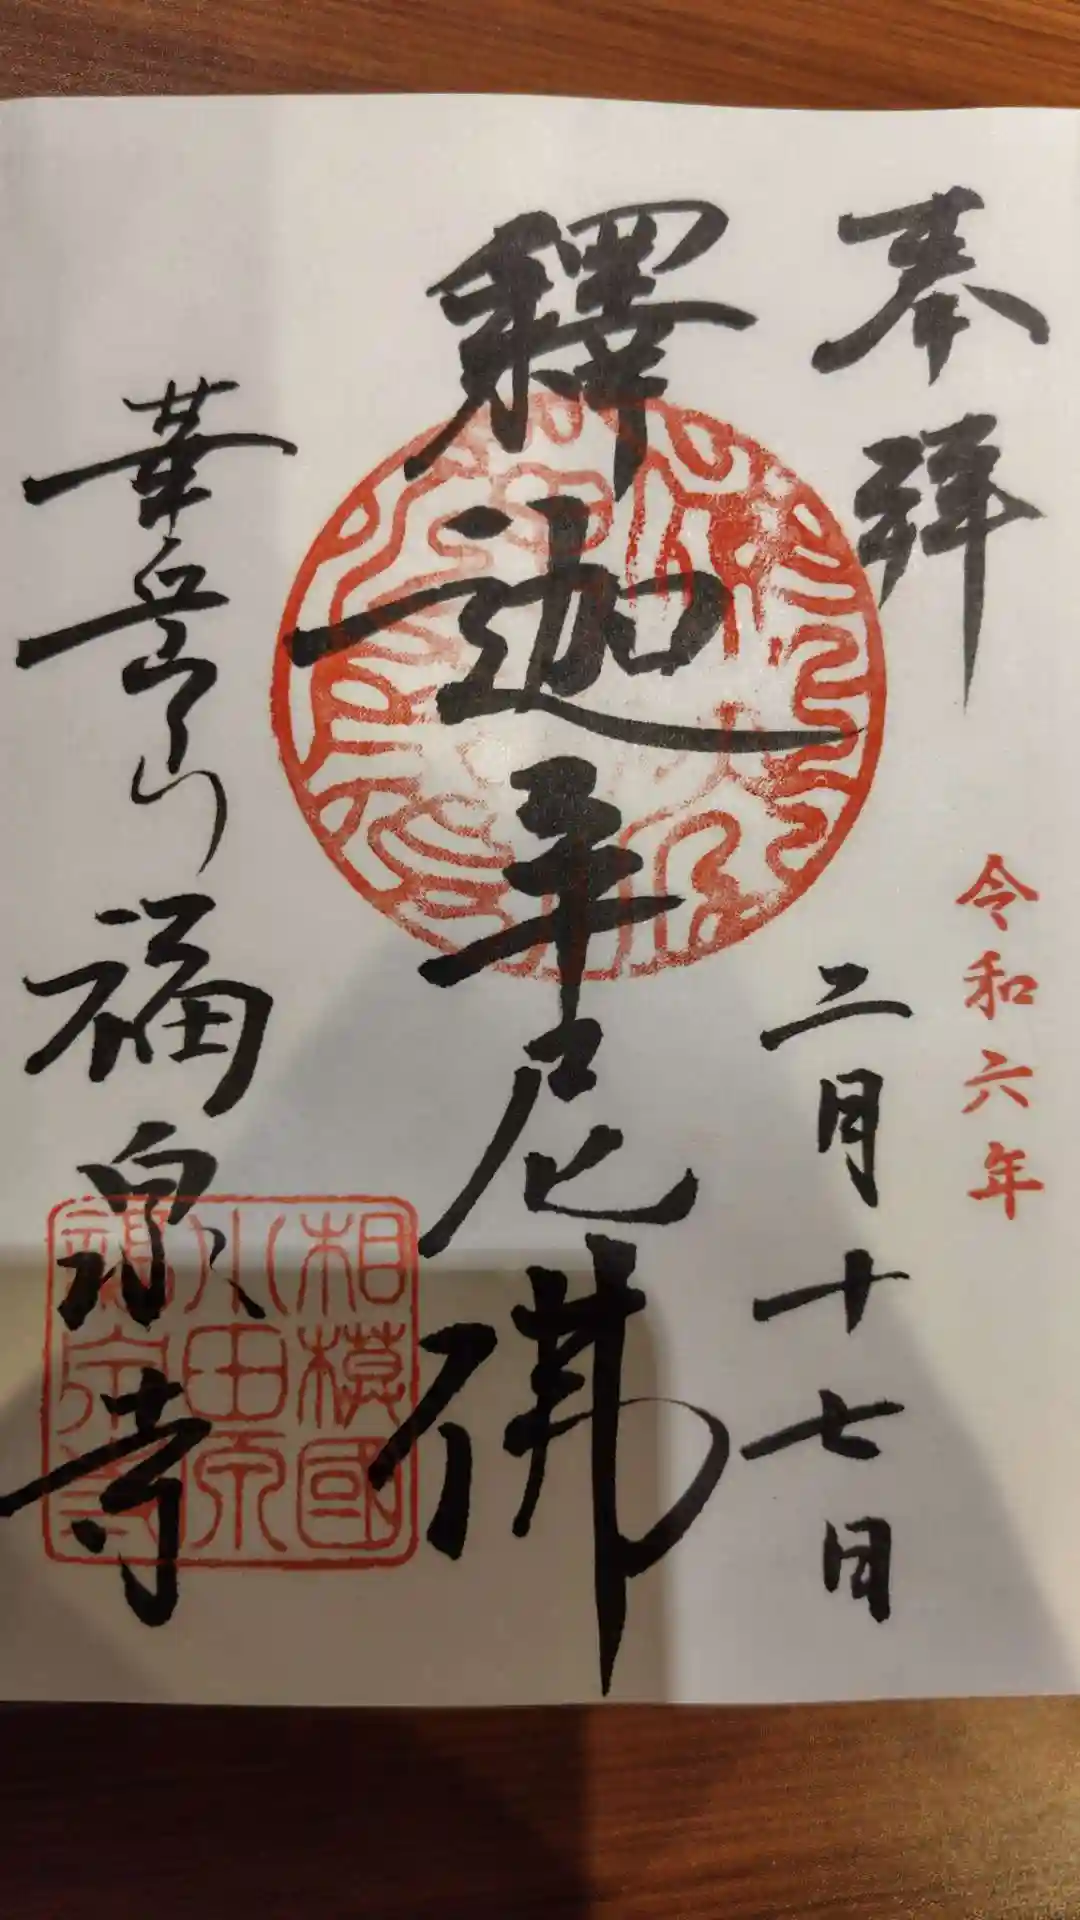 奉拝
令和六年
二月十七日
釋迦牟尼佛
華岳山
福泉寺
相模國
小田原